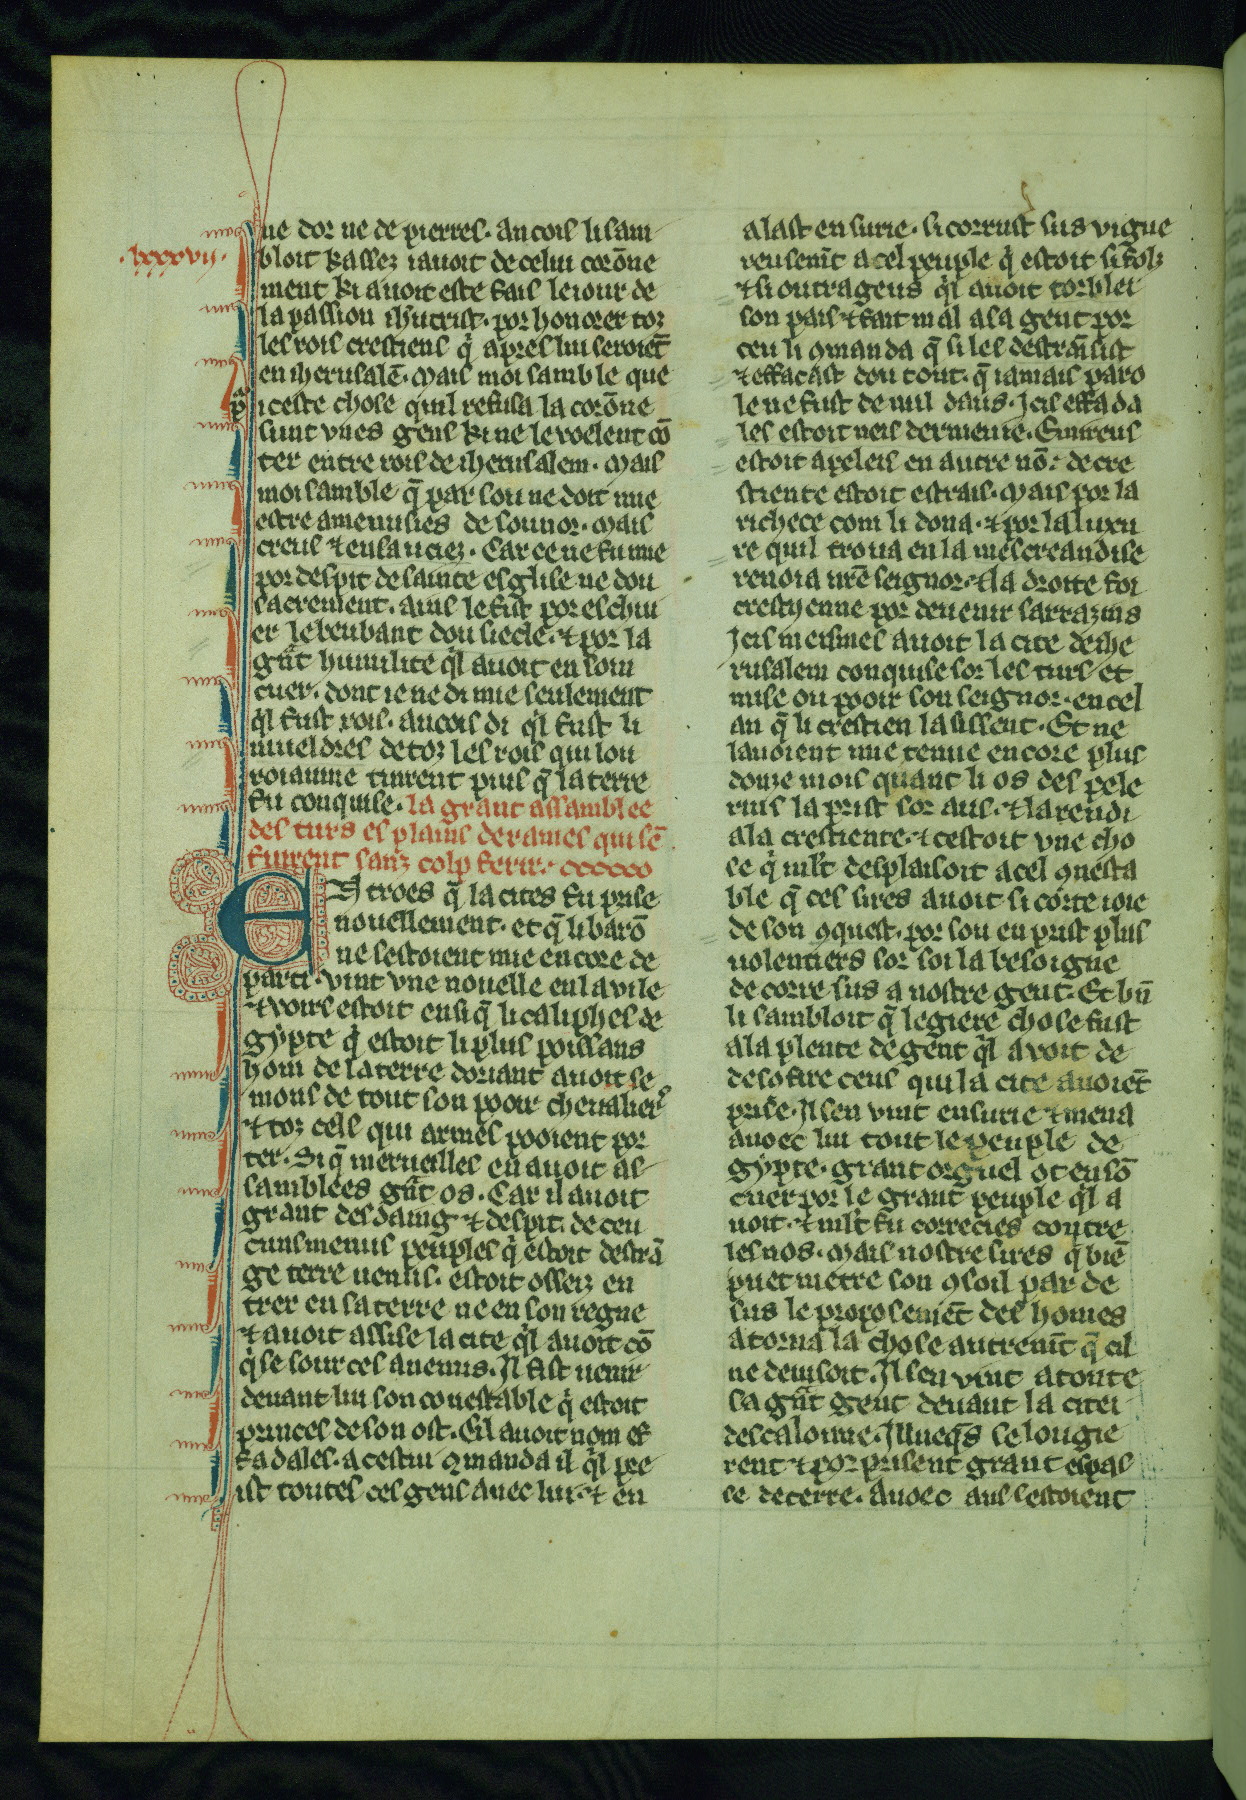 ne dor ne de pierres. ancois li sam
.lxxxvii.
bloit kassez iauoit de celui corōne
ment ki auoit este fais le iour de
la passion ihūcrist. por honorer toz
les rois crestiens q̇ apres lui seroiēt
en iherusalē. Mais moi samble que
p̄ iceste chose quil refusa la corōne
sunt vnes gens ki ne le voelent cō
ter entre rois de iherusalem. Mais
moi samble q̄ par sou ne doit mie
estre amenusies de sounor. Mais
creus ⁊ ensauciez. Car ce ne fu mie
por despit de sainte esglise ne dou
sacrement. ains le fist por eschiu
er le beubant dou siecle. ⁊ por la
gn̄t humilite ql̇ auoit en som
cuer. dont ie ne di mie seulement
ql̇ fust rois. ancois di ql̇ fust li
mieldres de toz les rois qui lou
roiaume tinrent puis q̄ la terre
fu conquise. la grant assamblee
des turs es plains de rames qui sē
fuirent sanz colp ferir. cccccc
ES troes q̄ la cites fu prise
nouellement. et q̄ li barō
ne sestoient mie encore de
parti. vint vne nouelle en la vile
⁊ voirs estoit ensi q̄ li caliphes de
gypte q̇ estoit li plus poissans
hom de la terre doriant auoit se
mons de tout son pooir cheualiers
⁊ toz cels qui armes pooient por
ter. Si q̄ merueilles en auoit as
samblees gn̄t os. Car il auoit
grant desdaing ⁊ despit. de ceu
cuns menus peuples q̇ estoit destrā
ge terre uenus. estoit osseiz en
trer en sa terre ne en son regne
⁊ auoit assise la cite ql̇ auoit cō
q̇se sour ces anemis. Il fist uenir
deuant lui son conestable q̇ estoit
princes de son ost. Cil auoit nom ef
fadales. a cestui ꝯmanda il ql̇ pre
ist toutes ces gens auec lui. ⁊ en
alast en surie. si corrust sus vigue
reusem̄t a cel peuple q̇ estoit si fols
⁊ si outrageus ql̇ auoit torblei
son pais ⁊ fait mal a sa gent por
ceu li ꝯmanda q̄ si les destrāsist
⁊ effacast dou tout. q̄ iamais paro
le ne fust de nul daus. Icis effada
les estoit neis dermenie. Emireus
estoit apeleis en autre nō. de cre
stiente estoit estrais. Mais por la
richece com li dona. ⁊ por la luxu
re quil troua en la mescreandise
renoia nrē seignor. ⁊ la droite foi
crestyenne por deuenir sarrazins
Icis meismes auoit la cite de ihe
rusalem conquise sor les turs et
mise ou pooir son seignor. en cel
an q̄ li crestien lasissent. Et ne
lauoient mie tenue encore plus
douze mois quant li os des pele
rins la prist sor aus. ⁊ la rendi
a la crestiente. ⁊ cestoit vne cho
se q̇ ml't desplaisoit a cel ꝯnesta
ble q̄ ces sires auoit si corte ioie
de son ꝯquest. por sou en prist plus
uolentiers sor soi la besoigne
de corre sus a nostre gent. Et bn̄
li sambloit q̄ legiere chose fust
a la plente de gent ql̇ auoit de
desofire ceus qui la cite auoiēt
prise. Il sen vint en surie ⁊ mena
auoec lui tout le peuple de
gypte. grant orguel ot en sō
cuer por le grant peuple ql̇ a
uoit. ⁊ ml't fu correcies contre
les nos. Mais nostre sires q̇ biē
puet metre son ꝯsoil par de
sus le proposemēt des homes
atorna la chose autrem̄t q̄ cil
ne deuisoit. Il sen vint a toute
sa gn̄t gent deuant la citei
descalonne. Illueq̄s se logie
rent ⁊ porprisent grant espas
se de terre. Auoec aus sestoient